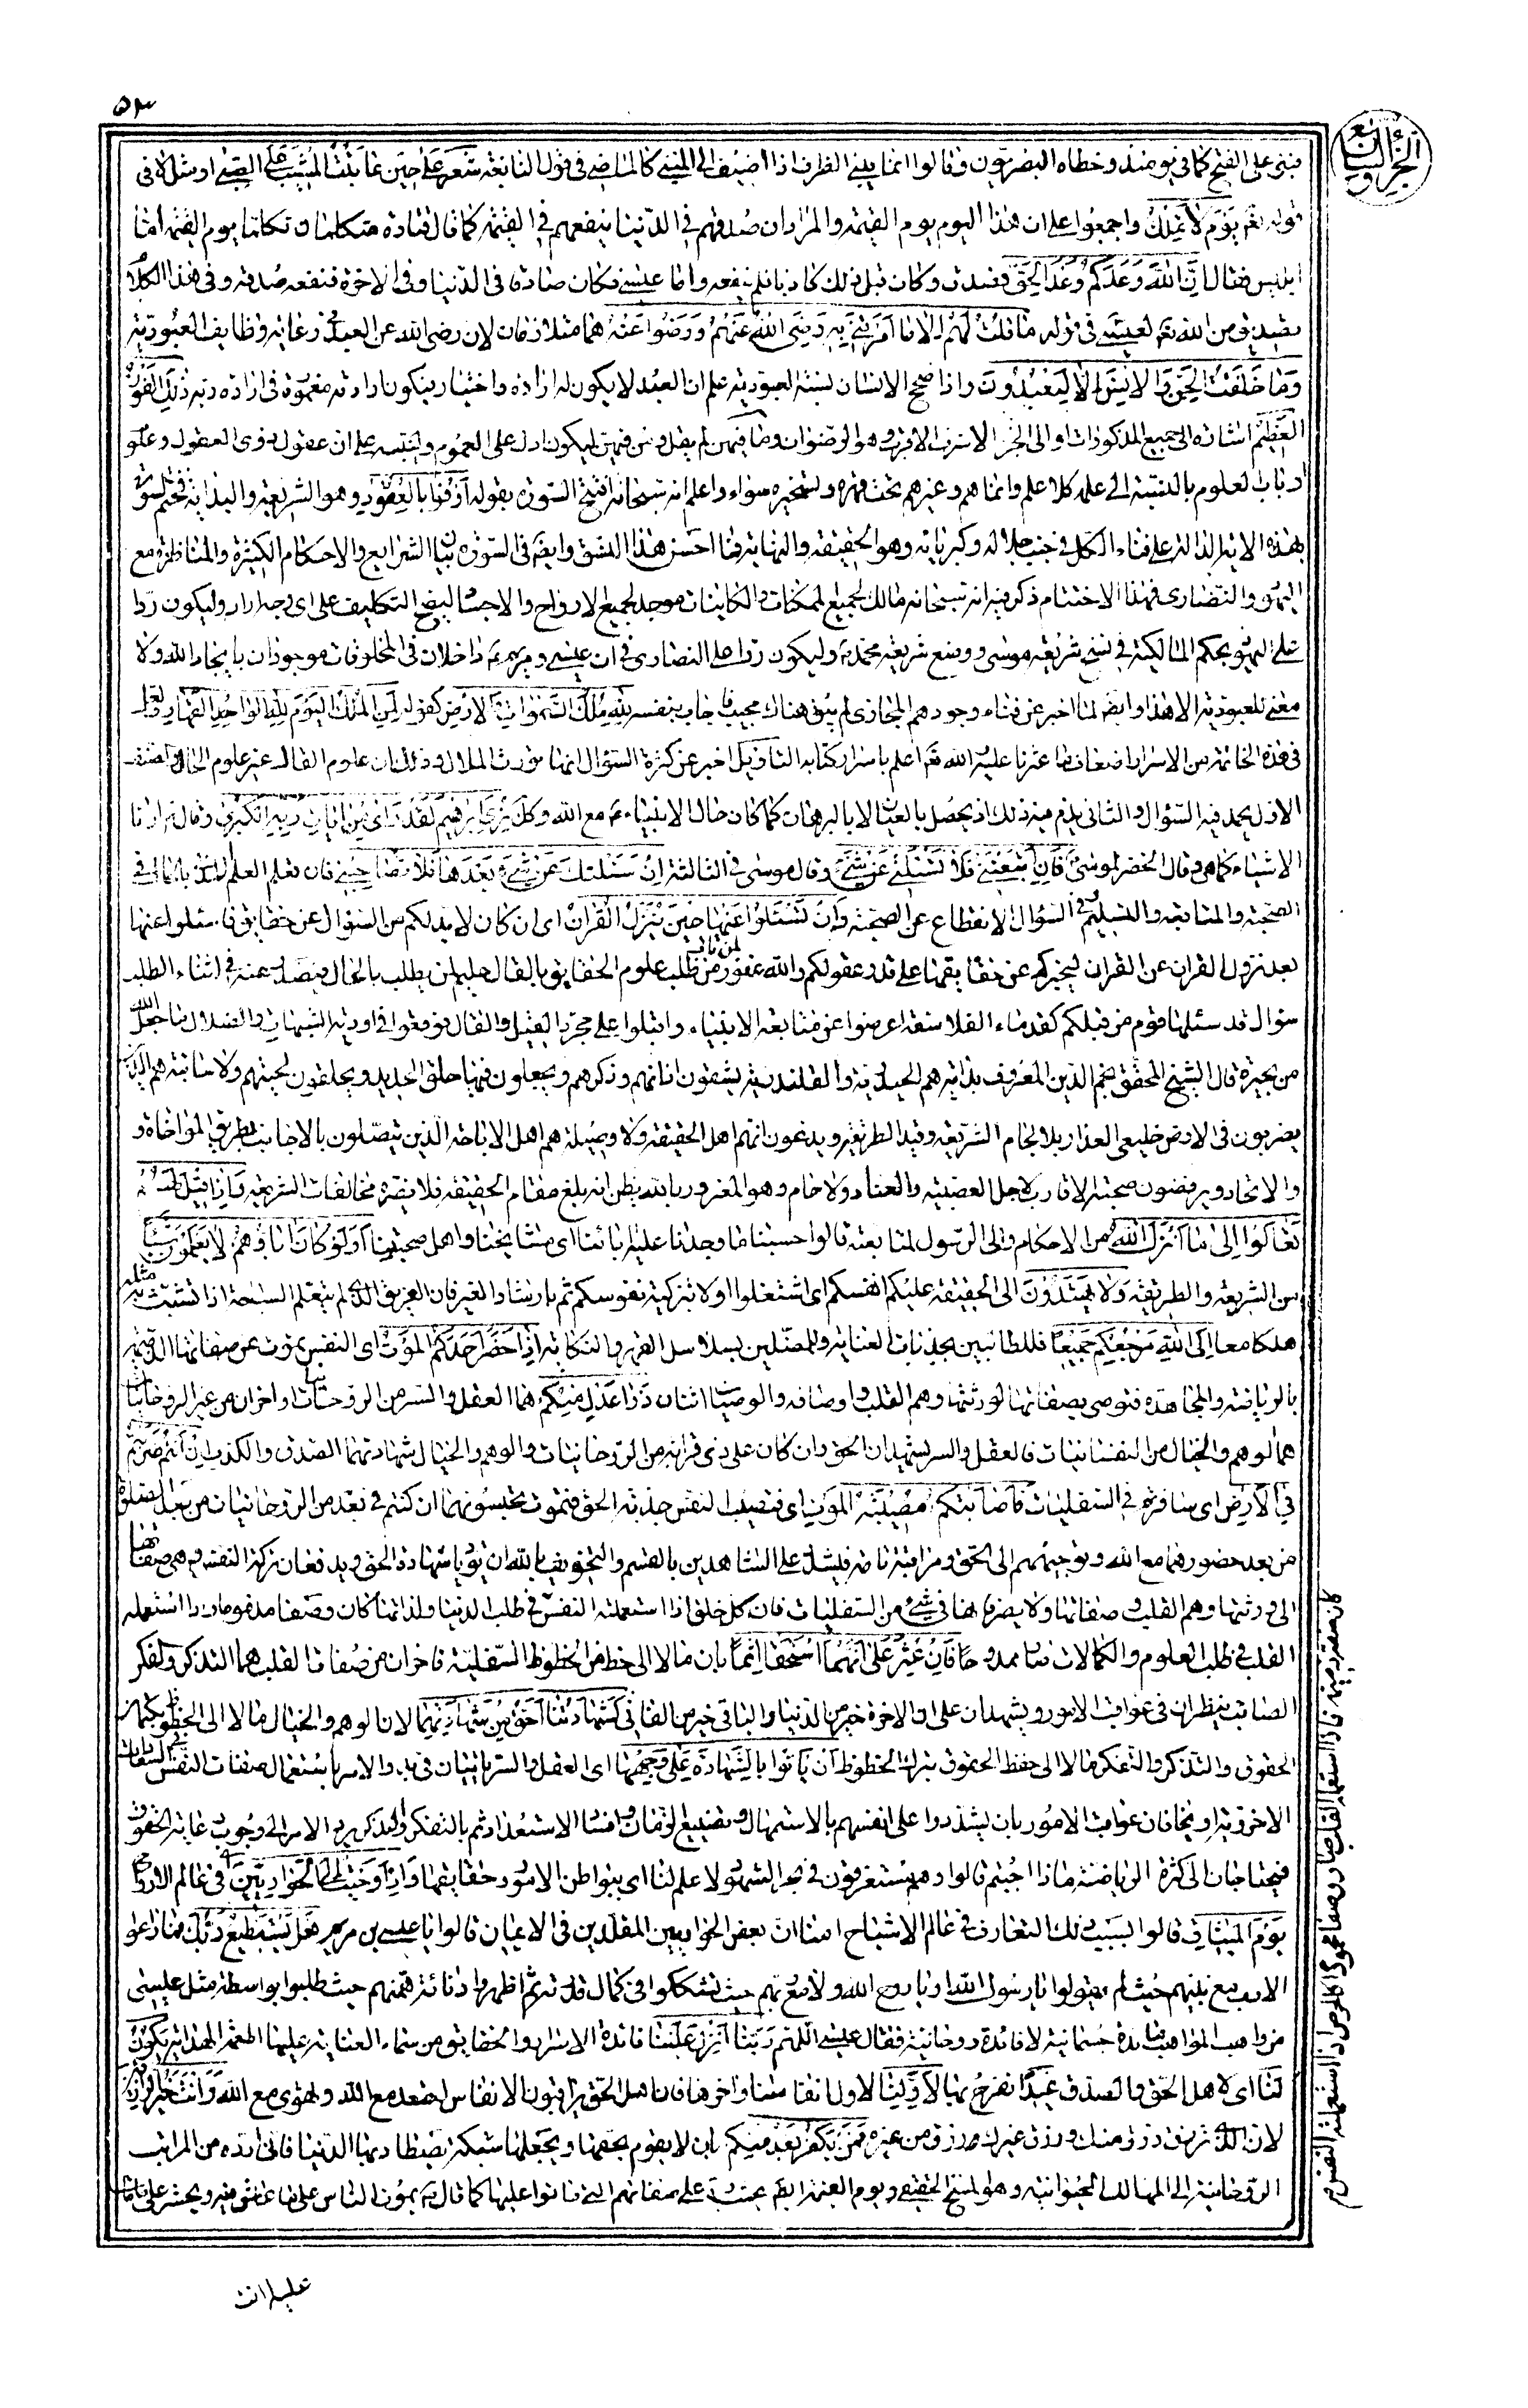 ٥٣
الجزء السابع
مبنى على الفتح كما فى يومئذ وخطاه البصريون وقالوا انما يبنى الظرف اذا اضيف الى المبنى كالماضى فى قول النابغة شعر على حين عاتبت المشيب على الصبى او مثل لا فى
قوله تعالى يَوْمَ لا تَمْلِكُ واجمعوا على ان هذا اليوم يوم القيمة والمراد ان صدقهم فى الدنيا ينفعهم فى القيمة كما قال قتادة متكلمان تكلما يوم القيمة اما
ابليس فقال اِنَّ اللهَ وَعَدَكُمْ وَعْدَ الحَقِّ فصدق وكان قبل ذلك كاذبا فلم ينفعه واما عيسى فكان صادقا فى الدنيا وفى الاخرة فنفعه صدقه وفى هذا الكلام
تصديق من الله تعالى لعيسى فى قوله ما قُلْتُ لَهُمْ اِلا ما اَمَرْتَنِى بِهِ رَضِىَ اللهُ عَنْهُمْ وَرَضُوا عَنْهُ هما متلازمان لان رضى الله عن العبد فى رعاية وظايف العبودية
وَما خَلَقْتُ الجِنَّ وَالاِنْسَ اِلا لِيَعْبُدُونِ واذا صحح الانسان نسبة العبودية علم ان العبد لا يكون له ارادة واختيار فيكون ارادته مغمورة فى ارادة ربه ذلِكَ الفَوْزُ
العَظِيمُ اشارة الى جميع المذكورات او الى الجزء الاشرف الاقرب وهو الرضوان وما فيهن لم يقل ومن فيهن ليكون ادل على العموم ولينبه على ان عقول ذوى العقول وعلوم
ارباب العلوم بالنسبة الى علمه كلا علم وانهم وغيرهم تحت قهره وتسخيره سواء واعلم انه سبحانه افتتح السورة بقوله اَوْفُوا بِالعُقُودِ وهو الشريعة والبداية فختم السورة
بهذه الاية الدالة على فناء الكل فى جنب جلاله وكبريائه وهو الحقيقة والنهاية فما احسن هذا النسق وايضا فى السورة بيان الشرايع والاحكام الكثيرة والمناظرة مع
اليهود والنصارى فهذا الاختتام ذكر فيه انه سبحانه مالك لجميع الممكنات والكاينات موجد لجميع الارواح والاجساد ليصح التكليف على اى وجه اراد وليكون ردا
على اليهود بحكم المالكية فى نسخ شريعة موسى ووضع شريعة محمد وليكون ردا على النصارى فى ان عيسى ومريم داخلان فى المخلوقات موجودان بايجاد الله ولا
معنى للعبودية الا هذا وايضا لما اخبر عن فناء وجودهم المجازى لم يبق هناك مجيب فاجاب بنفسه لِلّهِ مُلْكُ السَّمواتِ وَالاَرْضِ كقوله لِمَنِ المُلْكُ اليَوْمَ لِلّهِ الواحِدِ القَهّارِ ولعل
فى هذه الخاتمة من الاسرار اضعاف ما عثرنا عليه الله تعالى اعلم باسرار كتابه التاويل اخبر عن كثرة السؤال انها تورث الملال وذلك ان علوم القال غير علوم الحال وصنف
الاول يحمد فيه السؤال والثانى يذم فيه ذلك اذ يحصل بالعيان لا بالبرهان كما كان حال الانبياء مع الله وَكَذلِكَ نُرِى اِبْرهِيمَ لَقَدْ رَاى مِنْ اياتِ رَبِّهِ الكُبْرى وقال ارنا
الاشياء كما هى وقال الخضر لموسى فَاِنِ اتَّبَعْتَنِى فَلا تَسْئَلْنِى عَنْ شَىْءٍ وقال موسى فى الثالثة اِنْ سَئَلْتُكَ عَنْ شَىْءٍ بَعْدَها فَلا تُصاحِبْنِى فان تعلم العلم اللدنى بالحال فى
الصحبة والمتابعة والتسليم لا فى السؤال الانقطاع عن الصحبة وَاِنْ تَسْئَلُوا عَنْها حِينَ يُنَزَّلُ القُرْانُ اى ان كان لا بد لكم من السؤال عن حقايق فاسئلوا عنها
بعد نزول القران عن القران ليخبركم عن حقايقها على قدر عقولكم والله غفور لمن تاب من طلب علوم الحقايق بالقال حليم لمن يطلب بالحال فيصدر عنه فى اثناء الطلب
سؤال قد سئلها قوم من قبلكم كقدماء الفلاسفة اعرضوا عن متابعة الانبياء واقبلوا على مجرد القيل والقال فوقعوا فى اودية الشبهات والضلال ما جعل الله
من بحيرة قال الشيخ المحقق نجم الدين المعروف بداية هم الحيدرية والقلندرية يشقون اذانهم وذكرهم ويجعلون فيها حلق الحديد ويحلقون لحيتهم ولا سائبة هم الذين
يضربون فى الارض خليعى العذار بلا لجام الشريعة وقيد الطريقة ويدعون انهم اهل الحقيقة ولا وصيلة هم اهل الاباحة الذين يتصلون بالاجانب بطريق المواخاة و
والاتحاد ويرفضون صحبة الاقارب لاجل العصبية والعناد ولا حام وهو المغرور بالله يظن انه بلغ مقام الحقيقة فلا يضره مخالفات الشريعة وَاِذا قِيلَ لَهُمْ
تَعالَوْا اِلى ما اَنْزَلَ اللهُ من الاحكام والى الرسول لمتابعته قالوا حسبنا ما وجدنا عليه اباءنا اى مشايخنا واهل صحبتنا اَوَلَوْ كانَ اباؤُهُمْ لا يَعْلَمُونَ شَيْئًا
من الشريعة والطريقة وَلا يَهْتَدُونَ الى الحقيقة عليكم انفسكم اى اشتغلوا اولا بتزكية نفوسكم ثم بارشاد الغير فان الغريق الذى لم يتعلم السباحة اذا تشبث به مثله
هلكا معا اِلَى اللهِ مَرْجِعُكُمْ جَمِيعًا فللطالبين بجذبات العناية وللمضلين بسلاسل القهر والنكاية اِذا حَضَرَ اَحَدَكُمُ المَوْتُ اى النفس تموت عن صفاتها الذميمة
بالرياضة والمجاهدة فتوصى بصفاتها لورثتها وهم القلب واوصافه والوصيان اثنان ذَوا عَدْلٍ مِنْكُمْ هما العقل والسر من الروحانيات او اخران من غير الروحانيات
هما الوهم والخيال من النفسانيات فالعقل والسر يشهدان الحق وان كان على ذى قرابة من الروحانيات والوهم والخيال شهادتهما الصدق والكذب اِنْ اَنْتُمْ ضَرَبْتُمْ
فِى الاَرْضِ اى سافرتم فى السفليات فَاَصابَتْكُمْ مُصِيبَةُ المَوْتِ اى فتصيب النفس جذبة الحق فتموت تحبسونهما ان كنتم فى بعد من الروحانيات من بعد الصلوة
من بعد حضورهما مع الله وتوجههم الى الحق ومراقبة تامة فيشدد على الشاهدين بالقسم والتخويف بالله ان يؤديا شهادة الحق ويدفعان تركة النفس وهى صفاتها
الى ورثتها وهم القلب وصفاتها ولا يصرفانها فى شىء من السفليات فان كل خلق اذا استعملته النفس فى طلب الدنيا ولذاتها كان وصفا مذموما واذا استعمله
القلب فى طلب العلوم والكمالات صار ممدوحا فَاِنْ عُثِرَ عَلى اَنَّهُمَا اسْتَحَقّا اِثْمًا بان مالا الى حظ من الحظوظ السفلية فاخران من صفات القلب هما التذكر والفكر
الصائب ينظران فى عواقب الامور ويشهدان على ان الاخرة خير من الدنيا والباقى خير من الفانى لَشَهادَتُنا اَحَقُّ مِنْ شَهادَتِهِما لان الوهم والخيال مالا الى الحظوظ بكتمان
الحقوق والتذكر والتفكر مالا الى حفظ الحقوق بترك الحظوظ اَنْ يَاْتُوا بِالشَّهادَةِ عَلى وَجْهِها اى العقل والسر ياتيان فى بدو الامر باستعمال صفات النفس فى السعادات
الاخروية او يخافان عواقب الامور بان يشددوا على انفسهم بالاستمهال وتضييع الزمان وافساد الاستعداد ثم بالتفكر والتذكر يرد الامر الى وجوب رعاية الحقوق
فيحتاجان الى كثرة الرياضة ماذا اجبتم قالوا وهم مستغرقون فى بحر الشهود لا علم لنا اى ببواطن الامور وحقايقها وَاِذْ اَوْحَيْتُ اِلَى الحَوارِيِّينَ فى عالم الارواح
يوم الميثاق قالوا بسبب ذلك التعارف فى عالم الاشباح امنا ان بعض الحواريين المقلدين فى الايمان قالوا يا عيسى بن مريم هَلْ يَسْتَطِيعُ رَبُّكَ فما راعوا
الادب مع نبيهم حيث لم يقولوا يا رسول الله او يا روح الله ولا مع ربهم حيث تشككوا فى كمال قدرته ثم اظهروا دنائة همتهم حيث طلبوا بواسطة مثل عيسى
من واهب المواهب مائدة جسمانية لا فائدة روحانية فقال عيسى اللهم رَبَّنا اَنْزِلْ عَلَيْنا مائدة الاسرار والحقايق من سماء العناية عليها اطعمة الهداية تكون
لنا اى لاهل الحق والصدق عيدا نفرح بها لاولنا لاول انفاسنا واخرها فان اهل الحق يراقبون الانفاس اتصعد مع الله وتهوى مع الله وَاَنْتَ خَيْرُ الرازِقِينَ
لان الذى ترزق رزق منك ورزق غيرك مرزوق من غيره فَمَنْ يَكْفُرْ بَعْدُ مِنْكُمْ بان لا يقوم بحقها ويجعلها شبكة يصطاد بها الدنيا فانى ارده من المراتب
الروحانية الى المهالك الحيوانية وهو المسخ الحقيقى ويوم القيمة ايضا على صفاتهم التى ماتوا عليها كما قال يموت الناس على ما عاش فيه ويحشر على ما مات
عليه انت